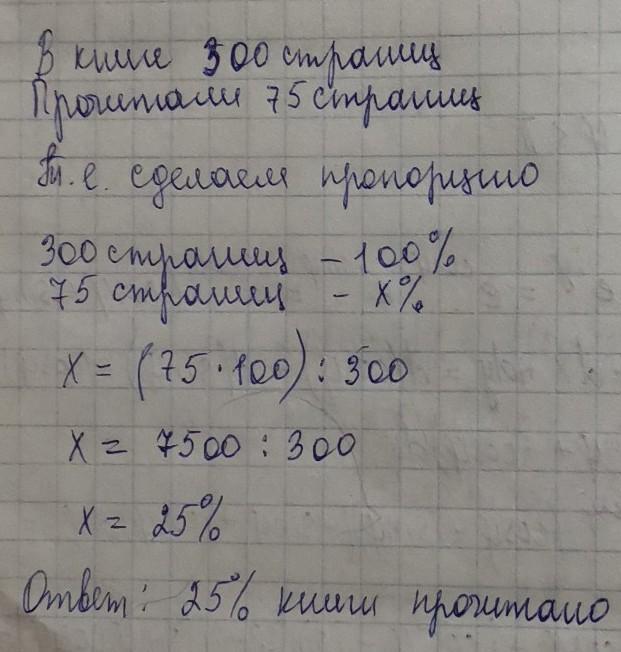 В книге 300 страниц
Прочитали 75 страниц
т. е. сделаем пропорцию
300 страниц - 100%
75 страниц - x%
x = (75 · 100) : 300
x = 7500 : 300
x = 25%
Ответ: 25% книги прочитано